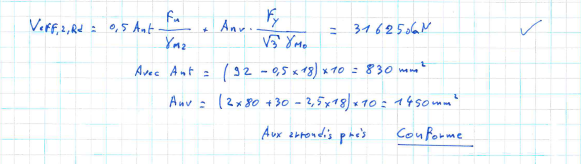 Veff,2,Rd = 0,5 Ant Fu/γM2 + Anv · Fy/(√3 γM0) = 316250 daN ✓
Avec Ant = (92 - 0,5 x 18) x 10 = 830 mm²
Anv = (2 x 80 + 30 - 2,5 x 18) x 10 = 1450 mm²
Aux arrondis près Conforme